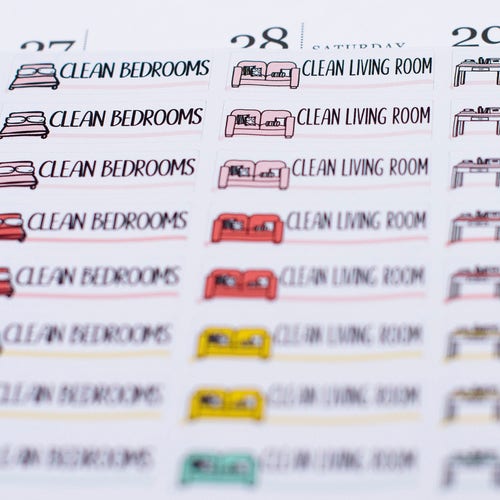 27 28 SATURDAY 29
CLEAN BEDROOMS CLEAN LIVING ROOM
CLEAN BEDROOMS CLEAN LIVING ROOM
CLEAN BEDROOMS CLEAN LIVING ROOM
CLEAN BEDROOMS CLEAN LIVING ROOM
CLEAN BEDROOMS CLEAN LIVING ROOM
CLEAN BEDROOMS CLEAN LIVING ROOM
CLEAN BEDROOMS CLEAN LIVING ROOM
CLEAN BEDROOMS CLEAN LIVING ROOM